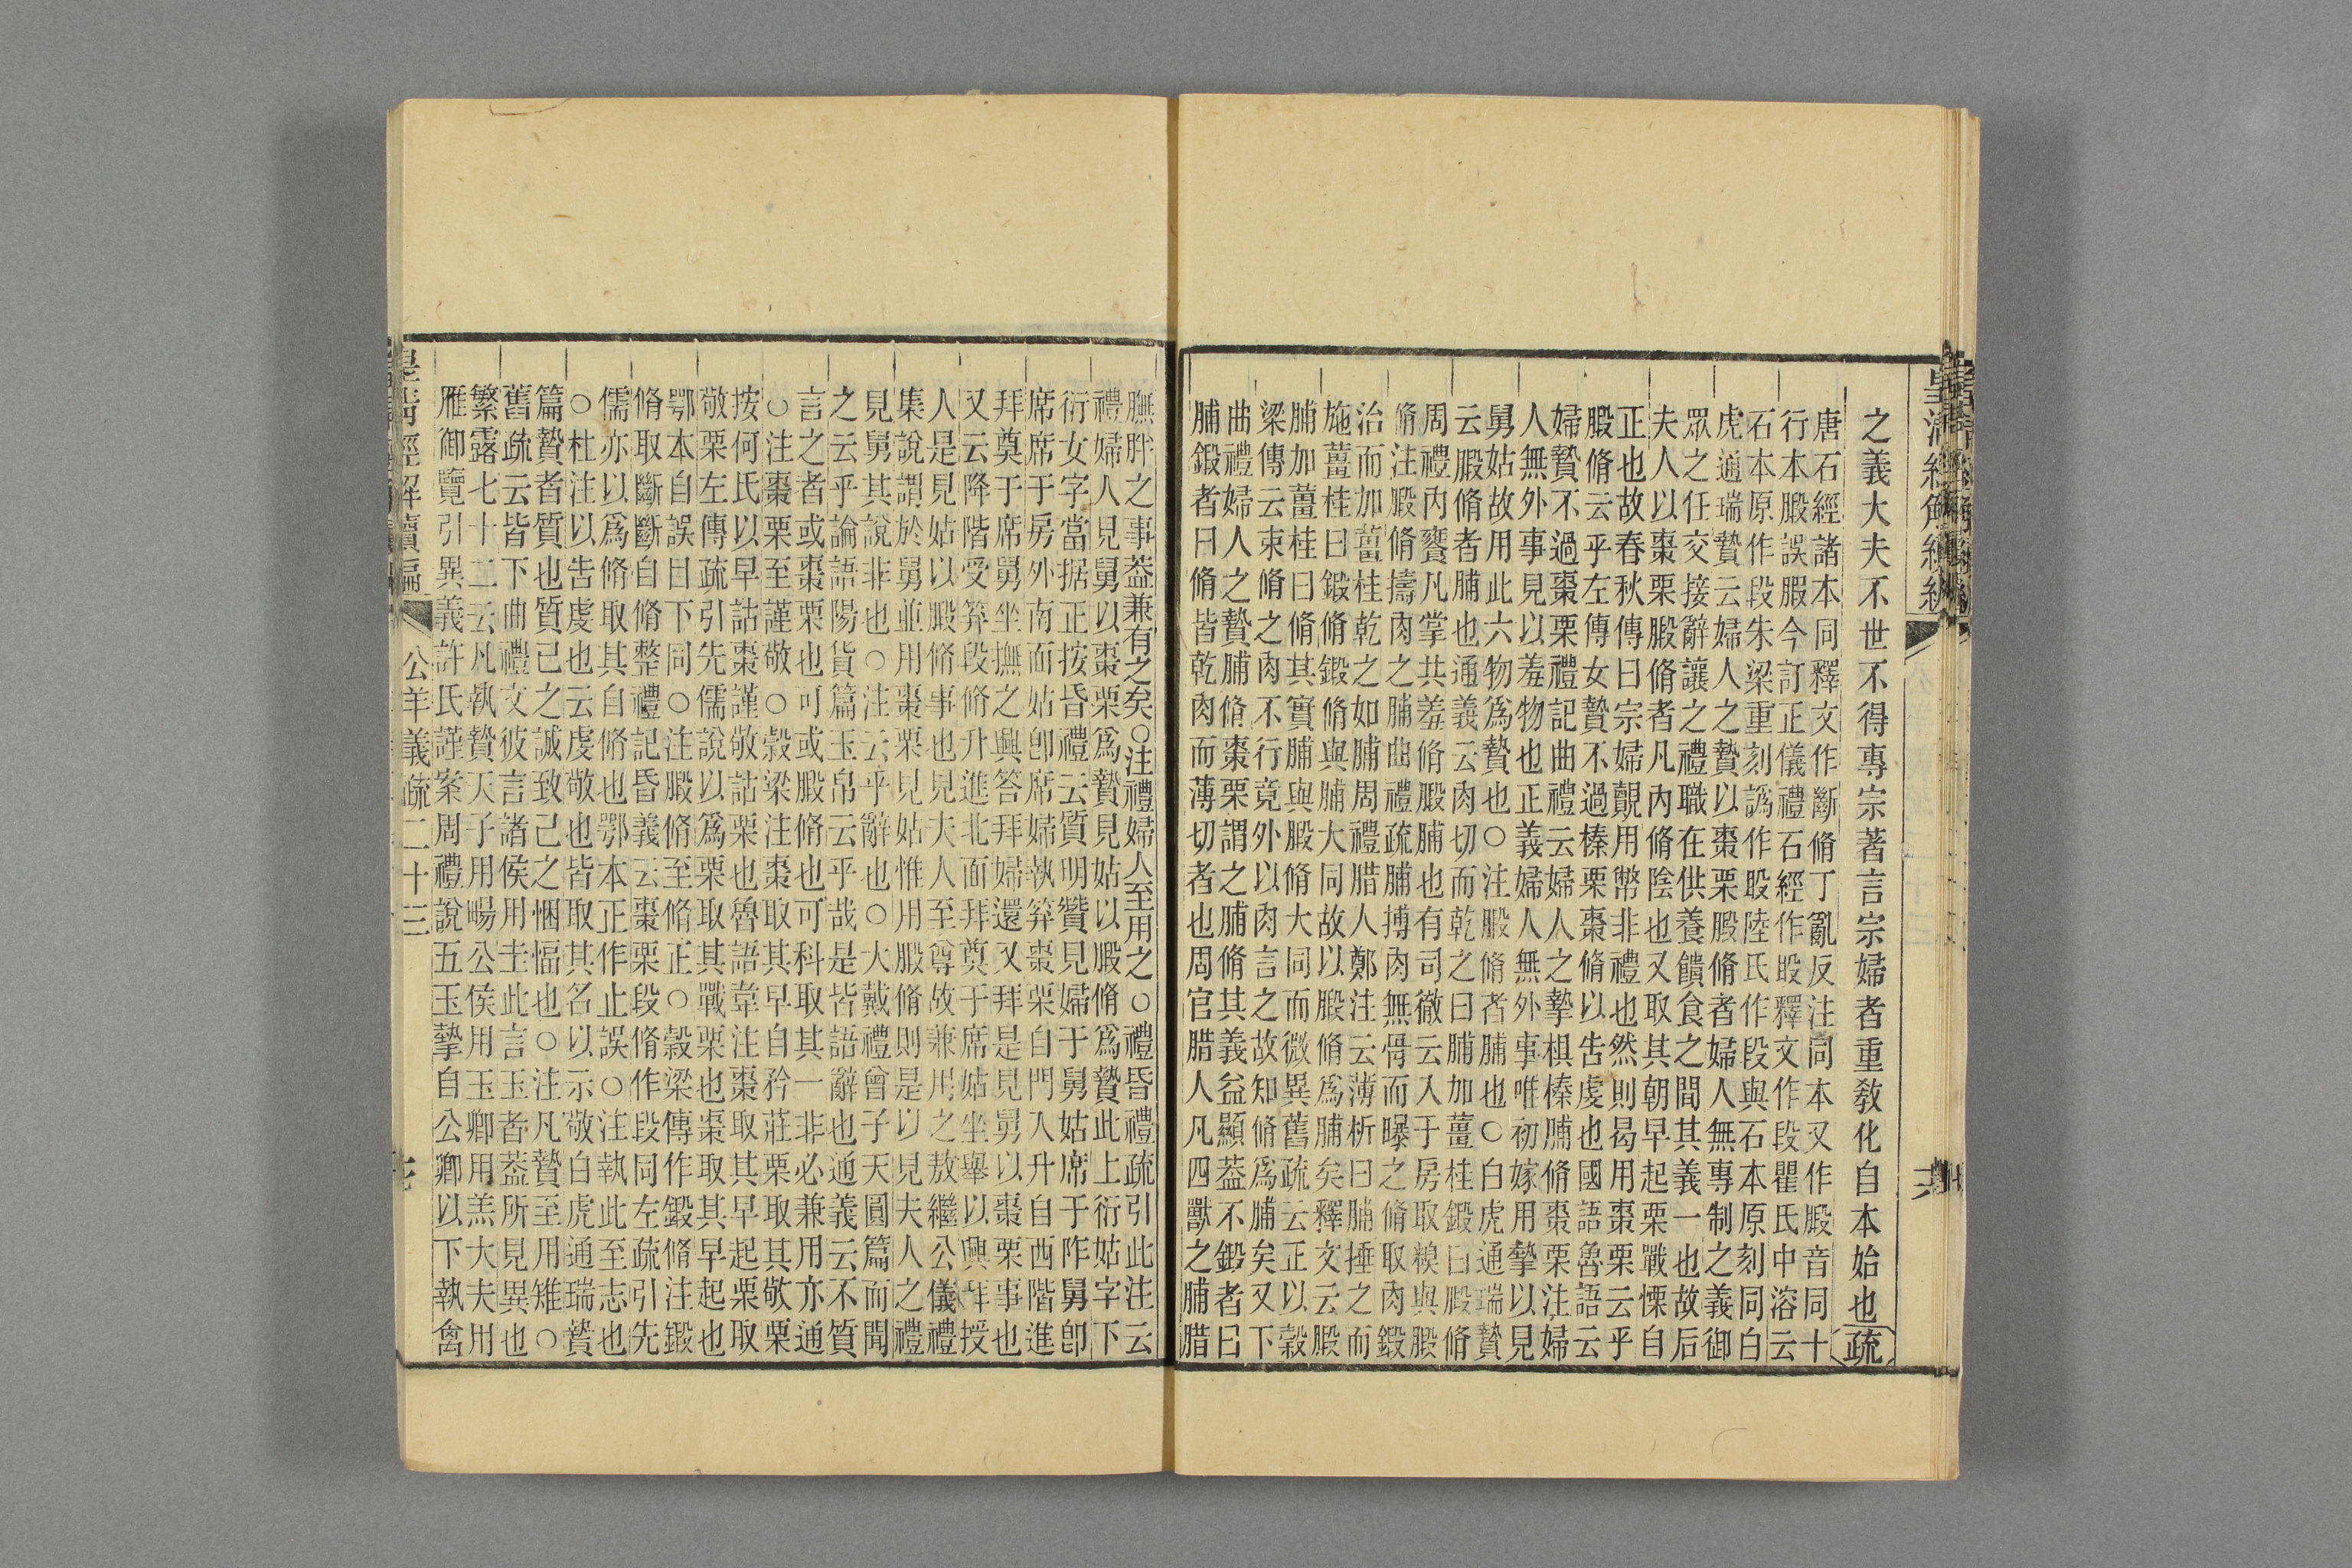 之義大夫不世不得專宗著言宗婦者重教化自本始也疏
唐石經諸本同釋文作斷脩丁亂反注同本又作腶音同十
行本腶誤服今訂正儀禮石經作毁釋文作段瞿氏中溶云
石本原作段朱梁重刻譌作毁陸氏作段與石本原刻同白
虎通瑞贄云婦人之贄以棗栗腶脩者婦人無專制之義御
眾之任交接辭讓之禮職在供養饋食之間其義一也故后
夫人以棗栗腶脩者凡內脩陰也又取其朝早起栗戰慄自
正也故春秋傳曰宗婦覿用幣非禮也然則曷用棗栗云乎
腶脩云乎左傳女贄不過榛栗棗脩以告虔也國語魯語云
婦贄不過棗栗禮記曲禮云婦人之摯椇榛脯脩棗栗注婦
人無外事見以羞物也正義婦人無外事唯初嫁用摯以見
舅姑故用此六物爲贄也○注腶脩者脯也○白虎通瑞贄
云腶脩者脯也通義云肉切而乾之曰脯加薑桂鍛曰腶脩
周禮內饔凡掌共羞脩腶脯也有司徹云入于房取糗與腶
脩注腶脩擣肉之脯曲禮疏脯搏肉無骨而曝之脩取肉鍛
治而加薑桂乾之如脯周禮腊人鄭注云薄析曰脯捶之而
施薑桂曰鍛脩鍛脩與脯大同故以腶脩爲脯矣釋文云腶
脯加薑桂曰脩其實脯與腶脩大同而微異舊疏云正以穀
梁傳云束脩之肉不行竟外以肉言之故知脩爲脯矣又下
曲禮婦人之贄脯脩棗栗謂之脯脩其義益顯蓋不鍛者曰
脯鍛者曰脩皆乾肉而薄切者也周官腊人凡四獸之脯腊
膴胖之事葢兼有之矣○注禮婦人至用之○禮昏禮疏引此注云
禮婦人見舅以棗栗爲贄見姑以腶脩爲贄此上衍姑字下
衍女字當据正按昏禮云質明贊見婦于舅姑席于阼舅卽
席席于房外南面姑卽席婦執笲棗栗自門入升自西階進
拜奠于席舅坐撫之興答拜婦還又拜是見舅以棗栗事也
又云降階受笲段脩升進北面拜奠于席姑坐舉以興拜授
人是見姑以腶脩事也見大人至尊故兼用之敖繼公儀禮
集說謂於舅並用棗栗見姑惟用腶脩則是以見夫人之禮
見舅其說非也○注云乎辭也○大戴禮曾子天圓篇而聞
之云乎論語陽貨篇玉帛云乎哉是皆語辭也通義云不質
言之者或棗栗也可或腶脩也可科取其一非必兼用亦通
○注棗栗至謹敬○穀梁注棗取其早自矜莊栗取其敬栗
按何氏以早詁棗謹敬詁栗也魯語韋注棗取其早起栗取
敬栗左傳疏引先儒說以爲栗取其戰栗也棗取其早起也
鄂本自誤目下同○注腶脩至脩正○穀梁傳作鍛脩注鍛
脩取斷斷自脩整禮記昏義云棗栗段脩作段同左疏引先
儒亦以爲脩取其自脩也鄂本正作止誤○注執此至志也
○杜注以告虔也云虔敬也皆取其名以示敬白虎通瑞贄
篇贄者質也質己之誠致己之悃愊也○注凡贄至用雉○
舊疏云皆下曲禮文彼言諸侯用圭此言玉者葢所見異也
繁露七十二云凡執贄天子用暢公侯用玉卿用羔大夫用
雁御覽引異義許氏謹案周禮說五玉摯自公卿以下執禽
公羊義疏二十三